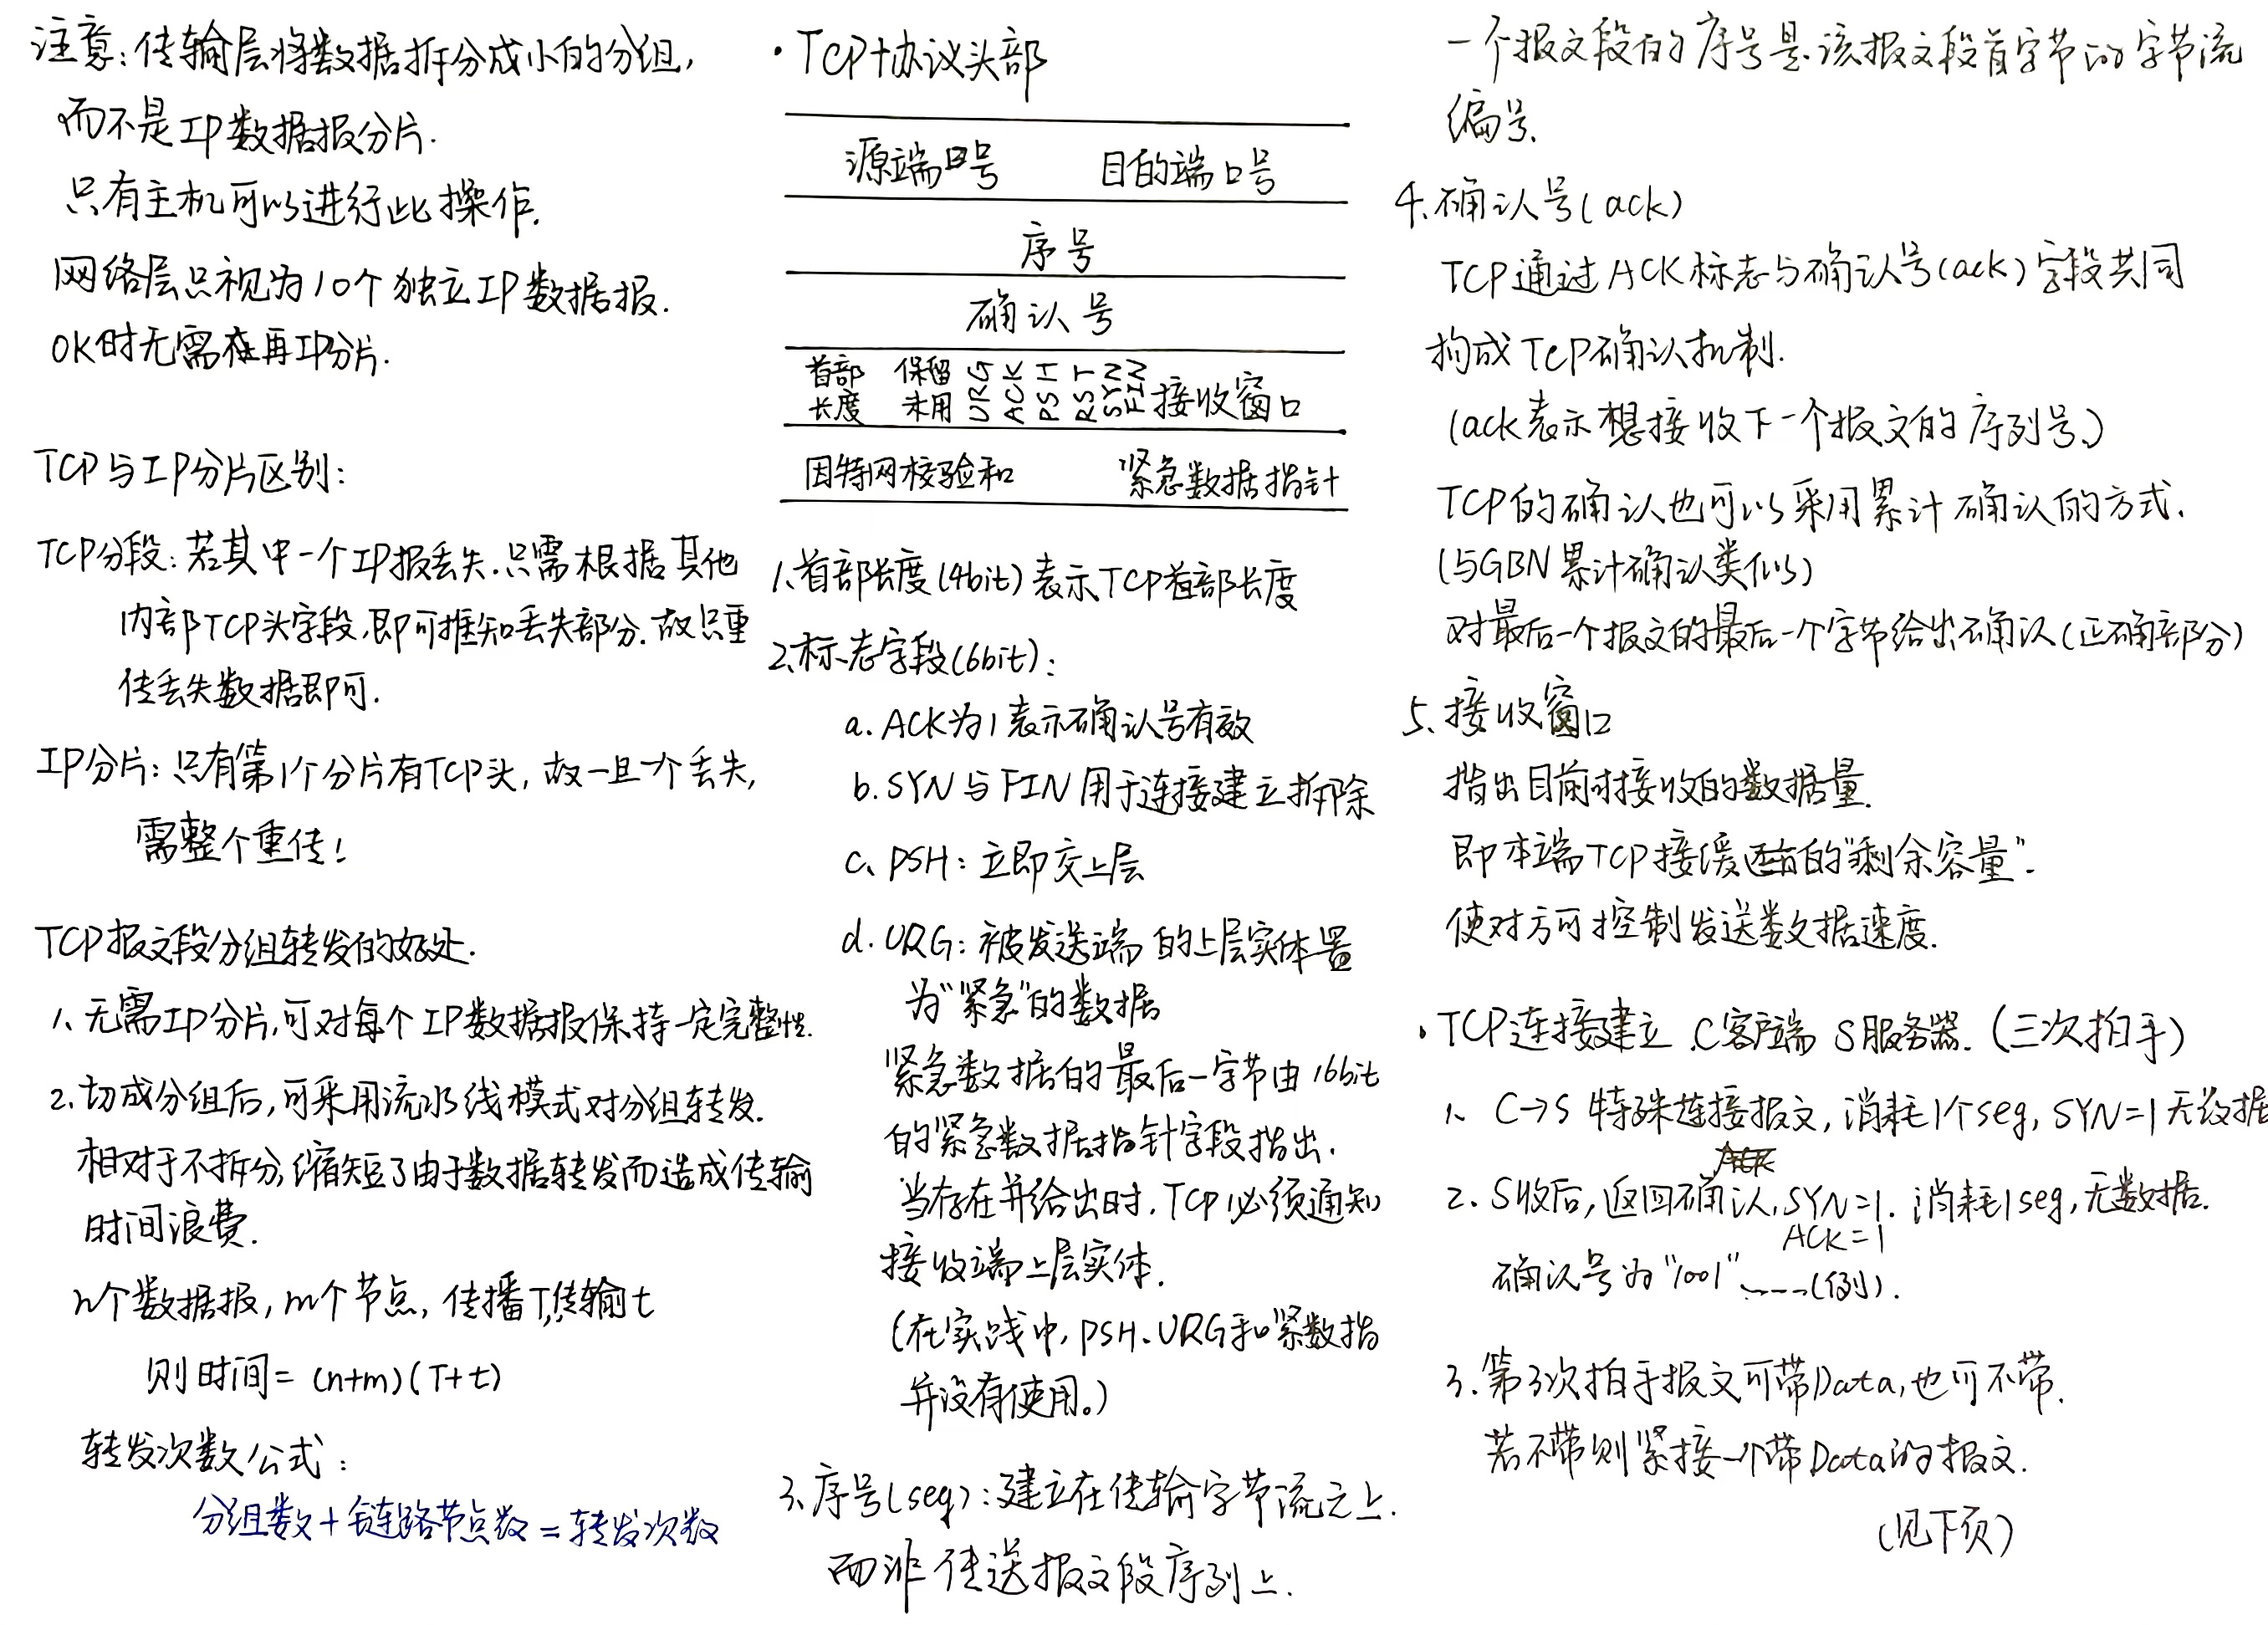 注意：传输层将数据拆分成小的分组，
而不是IP数据报分片.
只有主机可以进行此操作.
网络层只视为10个独立IP数据报.
OK时无需在再IP分片.
TCP与IP分片区别：
TCP分段：若其中一个IP报丢失.只需根据其他
内部TCP头字段,即可推知丢失部分.故只重
传丢失数据即可.
IP分片：只有第1个分片有TCP头，故一旦一个丢失，
需整个重传！
TCP报文段分组转发的好处.
1、无需IP分片,可对每个IP数据报保持一定完整性.
2.切成分组后,可采用流水线模式对分组转发.
相对于不拆分,缩短了由于数据转发而造成传输
时间浪费.
n个数据报,m个节点,传播T,传输t
则时间=(n+m)(T+t)
转发次数公式：
分组数+链路节点数=转发次数
·TCP协议头部
源端口号 目的端口号
序号
确认号
首部长度 保留未用 URG ACK PSH RST SYN FIN 接收窗口
因特网校验和 紧急数据指针
1、首部长度(4bit)表示TCP首部长度
2、标志字段(6bit)：
a. ACK为1表示确认号有效
b. SYN与FIN用于连接建立拆除
c、PSH：立即交上层
d. URG：被发送端的上层实体置
为"紧急"的数据
紧急数据的最后一字节由16bit
的紧急数据指针字段指出.
当存在并给出时,TCP必须通知
接收端上层实体.
(在实践中,PSH、URG和紧数指
并没有使用。)
3、序号(seq)：建立在传输字节流之上.
而非传送报文段序列上.
一个报文段的序号是该报文段首字节的字节流
编号.
4、确认号(ack)
TCP通过ACK标志与确认号(ack)字段共同
构成TCP确认机制.
(ack表示想接收下一个报文的序列号。)
TCP的确认也可以采用累计确认的方式.
(与GBN累计确认类似)
对最后一个报文的最后一个字节给出确认(正确部分)
5、接收窗口
指出目前对接收的数据量.
即本端TCP接缓的"剩余容量".
使对方可控制发送数据速度.
·TCP连接建立 C客户端 S服务器.(三次拍手)
1、C→S 特殊连接报文,消耗1个seq,SYN=1无数据
2. S收后,返回确认,SYN=1. 消耗1seq,无数据.
ACK=1
确认号为"1001"----(例).
3.第3次拍手报文可带Data,也可不带.
若不带则紧接一个带Data的报文.
(见下页)